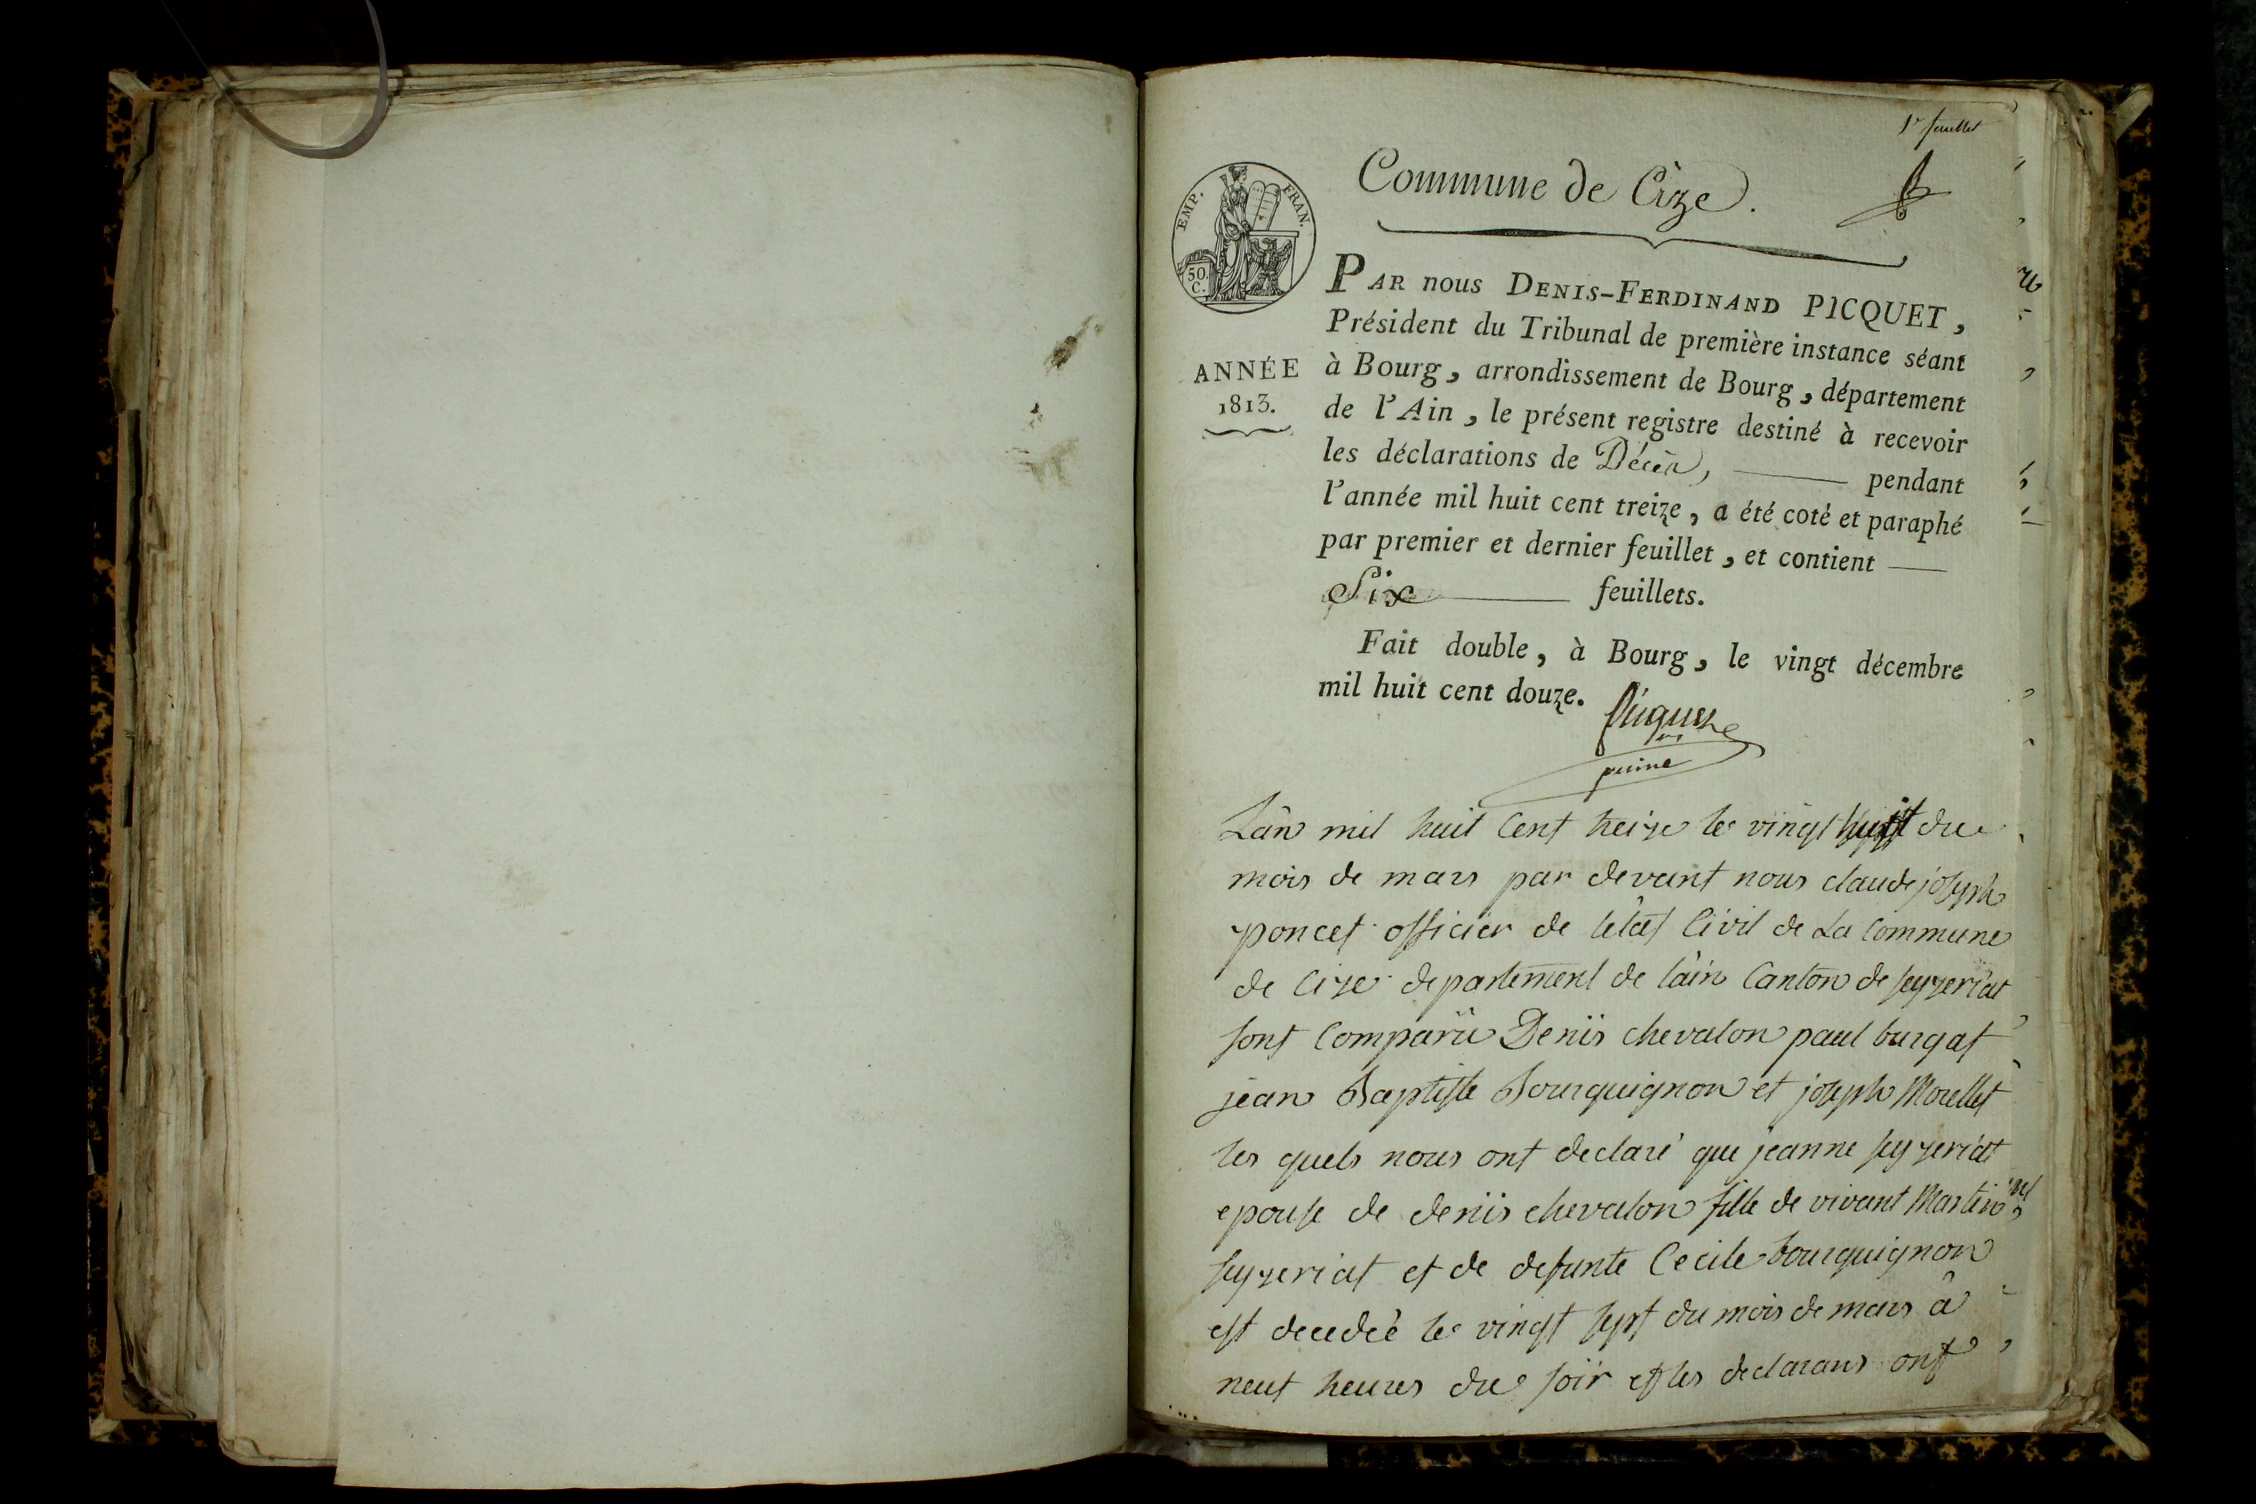 1r feuillet
Commune de Cize.
EMP. FRAN.
50.
C.
PAR nous DENIS-FERDINAND PICQUET,
Président du Tribunal de première instance séant
ANNÉE
1813.
à Bourg, arrondissement de Bourg, département
de l'Ain, le présent registre destiné à recevoir
les déclarations de Décès, pendant
l'année mil huit cent treize, a été coté et paraphé
par premier et dernier feuillet, et contient
Six feuillets.
Fait double, à Bourg, le vingt décembre
mil huit cent douze.
Lân mil huit Cent treize le vingt huit du
mois de mars par devant nous claude joseph
poncet officier de létat Civil de La Commune
de Cize departement de lâin Canton de seyzeriat
sont Comparü Denis chevalon paul burgat
jean Baptiste Bourguignon et joseph Morellet
les quels nous ont declaré que jeanne seyzeriat
epouse de denis chevalon fille de vivant Martin
seyzeriat et de defunte Cecile bourguignon
est decedeé le vingt sept du mois de mars â
neuf heures du soir et les declarans ont